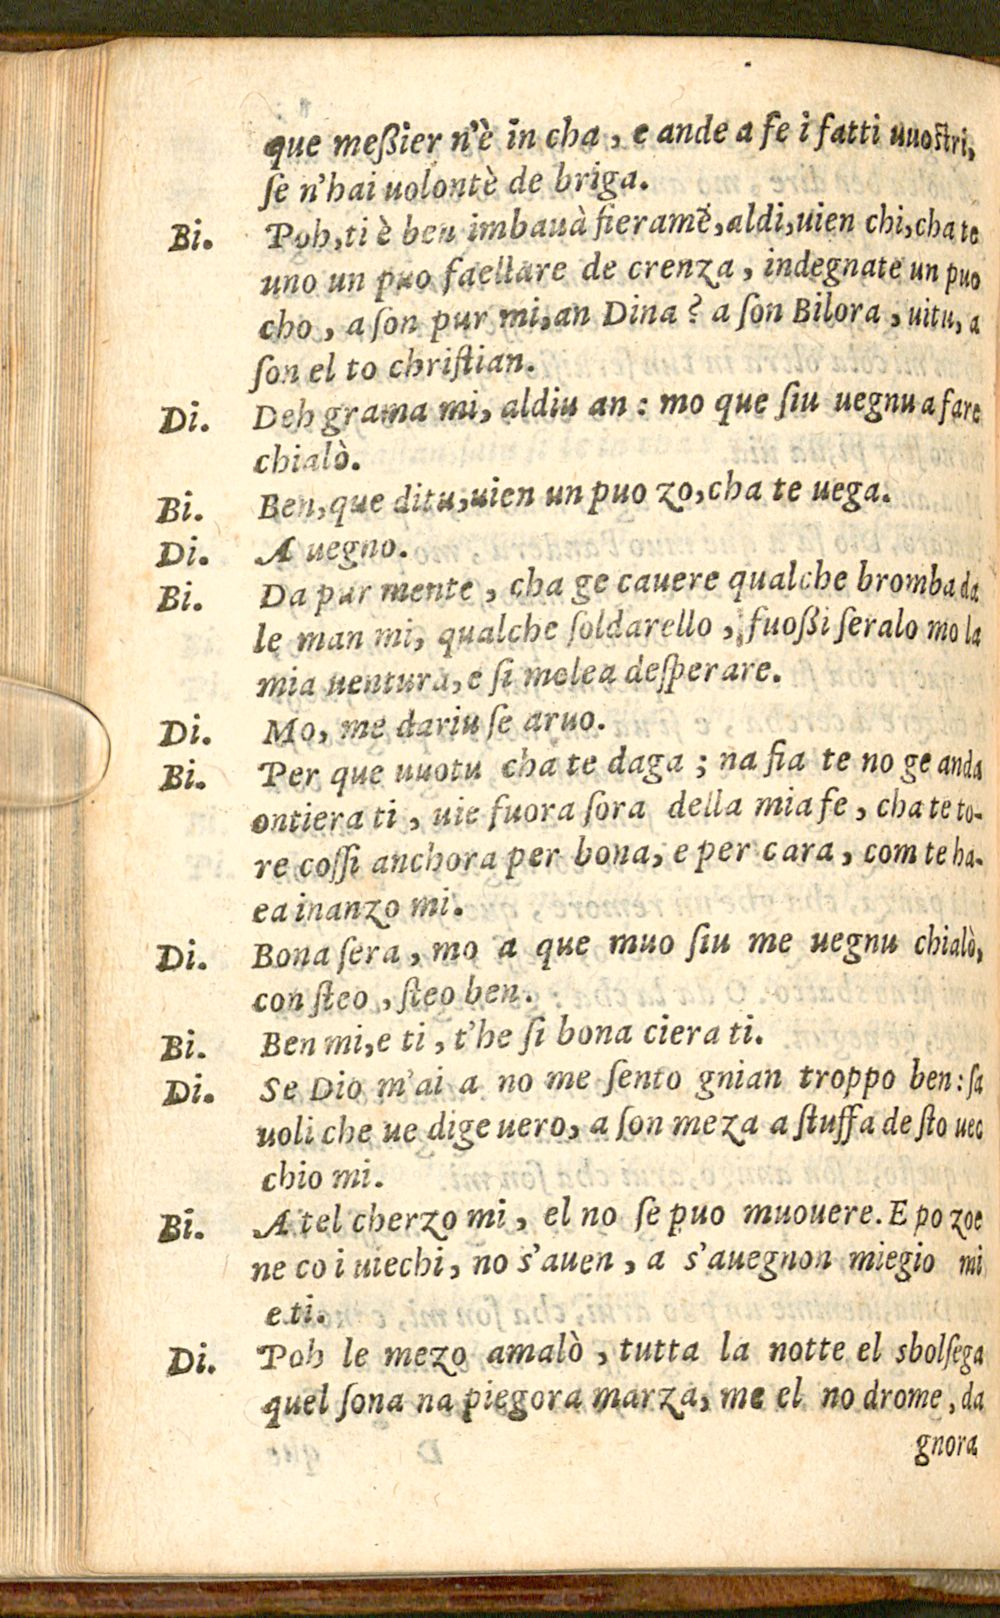 que meßier n'è in cha, e ande a fe i fatti uuoſtri,
ſe n'hai uolontè de briga.
Bi. Poh, ti è ben imbauà fieramē, aldi, uien chi, cha te
uno un puo faellare de crenza, indegnate un puo
cho, a ſon pur mi, an Dina? a ſon Bilora, uitu, a
ſon el to chriſtian.
Di. Deh grama mi, aldiu an: mo que ſiu uegnu a fare
chialò.
Bi. Ben, que ditu, uien un puo zo, cha te uega.
Di. A uegno.
Bi. Da pur mente, cha ge cauere qualche bromba da
le man mi, qualche ſoldarello, fuoßi ſeralo mo la
mia uentura, e ſi me lea deſperare.
Di. Mo, me dariu ſe aruo.
Bi. Per que uuotu cha te daga; na fia te no ge anda
ontiera ti, uie fuora ſora della mia fe, cha te to-
re coſſi anchora per bona, e per cara, com te ha-
ea inanzo mi.
Di. Bona ſera, mo a que muo ſiu me uegnu chialò,
con ſteo, ſteo ben.
Bi. Ben mi, e ti, t'he ſi bona ciera ti.
Di. Se Dio m'ai a no me ſento gnian troppo ben: ſa
uoli che ue dige uero, a ſon meza a ſtuffa de ſto uec
chio mi.
Bi. A tel cherzo mi, el no ſe puo muouere. E po zoe
ne co i uiechi, no s'auen, a s'auegnon miegio mi
e ti.
Di. Poh le mezo amalò, tutta la notte el sbolſega
quel ſona na piegora marza, me el no drome, da
gnora